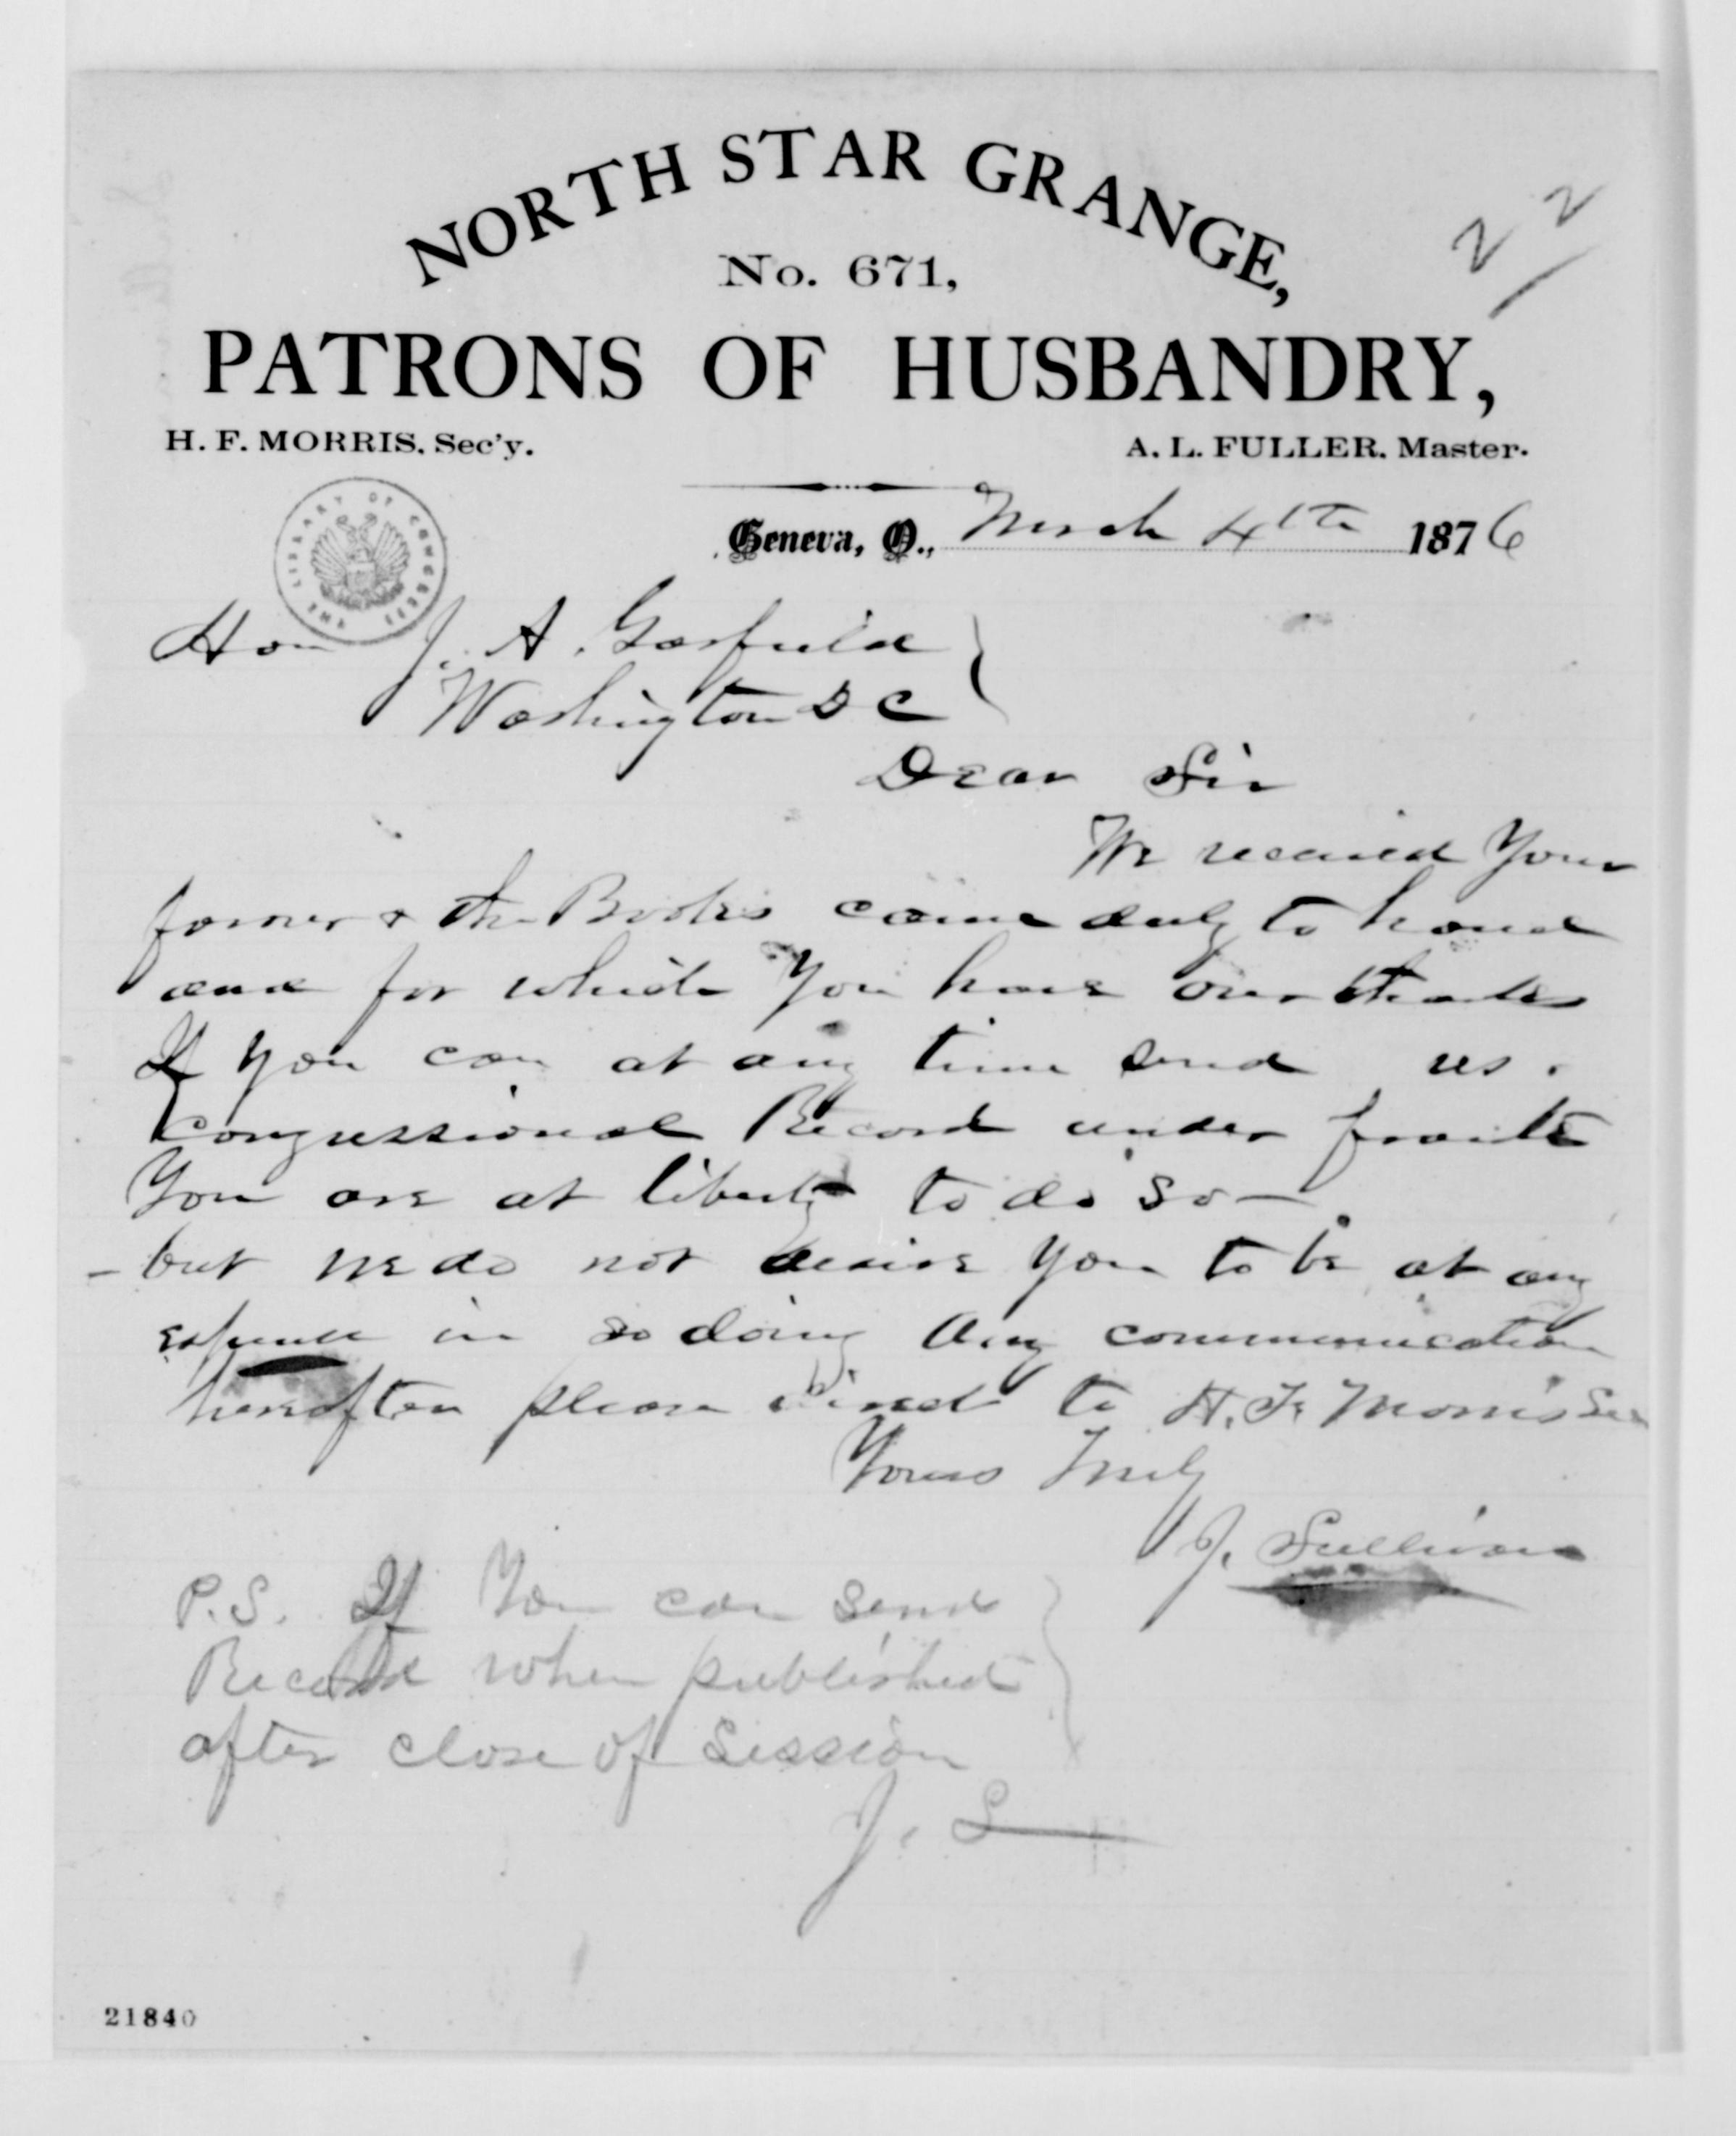 NORTH STAR GRANGE,
No. 671,
22
PATRONS OF HUSBANDRY,
H. F. MORRIS. Sec'y.
A. L. FULLER. Master.
Geneva, O., March 4th 1876
THE LIBRARY OF CONGRESS
Hon J. A. Garfield
Washington D C
Dear Sir
We received Your
former & the Books came duly to hand
and for which You have our thanks
If you can at any time send us
Congressional Record under
You are at liberty to do so —
- but we do not desire You to be at any
expense in so doing Any communication
hereafter please direct to H. F. Morris Sec
Yours Truly
J. Sullivan
P.S. If You can send
Record when published
after close of Session
J. S
21840